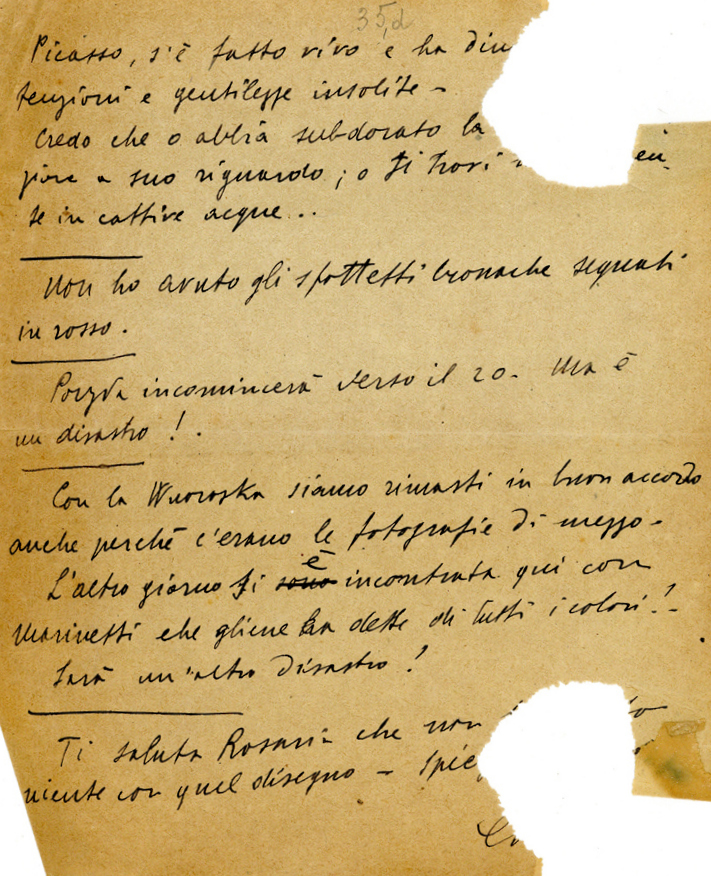 35,d
Picasso, s'è fatto vivo e ha diu
tenzioni e gentilezze insolite -
Credo che o abbia subdorato la
giore a suo riguardo; o si trovi
te in cattive acque..
Non ho avuto gli spottetti cronache segnati
in rosso.
incomincerà verso il 20 - Ma è
un disastro!.
Con la siamo rimasti in buon accordo
anche perchè c'erano le fotografie di mezzo -
L'altro giorno si è incontrata qui con
Marinetti che gliene ha dette di tutti i colori! -
Sarà un'altro disastro!
Ti saluta Rosaria che non
niente con quel disegno - spie